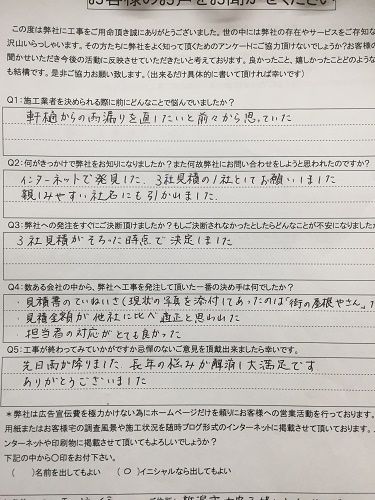 この度は弊社に工事をご用命頂き誠にありがとうございました。世の中には弊社の存在やサービスをご存知な
沢山いらっしゃいます。その方たちに弊社をよく知って頂くためのアンケートにご協力頂けないでしょうか?お客様の
聞かせいただき今後の活動に反映させていただきたいと考えております。良かったこと、嬉しかったことどのような
も結構です。是非ご協力お願い致します。（出来るだけ具体的に書いて頂ければ幸いです）
Q1:施工業者を決められる際に前にどんなことで悩んでいましたか?
軒樋からの雨漏りを直したいと前々から思っていた
Q2:何がきっかけで弊社をお知りになりましたか?また何故弊社にお問い合わせをしようと思われたのですか?
インターネットで発見した、3社見積の1社としてお願いしました
親しみやすい社名にも引かれました
Q3:弊社への発注をすぐにご決断頂けましたか?もしご決断されなかったとしたらどんなことが不安になりました
3社見積がそろった時点で決定しました
Q4:数ある会社の中から、弊社へ工事を発注して頂いた一番の決め手は何でしたか?
・見積書のていねいさ(現状の写真を添付してあったのは「街の屋根やさん」
・見積金額が他社に比べ適正と思われた
・担当者の対応がとても良かった
Q5:工事が終わってみていかがですか忌憚のないご意見を頂戴出来ましたら幸いです。
先日雨が降りました 長年の悩みが解消し大満足です
ありがとうございました
＊弊社は広告宣伝費を極力かけない為にホームページだけを頼りにお客様への営業活動を行っております。
用紙またはお客様宅の調査風景や施工状況を随時ブログ形式のインターネットに掲載させて頂いております。
ンターネットや印刷物に掲載させて頂いてもよろしいでしょうか?
下記の中から〇印をお付下さい。
（　）名前を出してもよい　（〇）イニシャルなら出してもよい